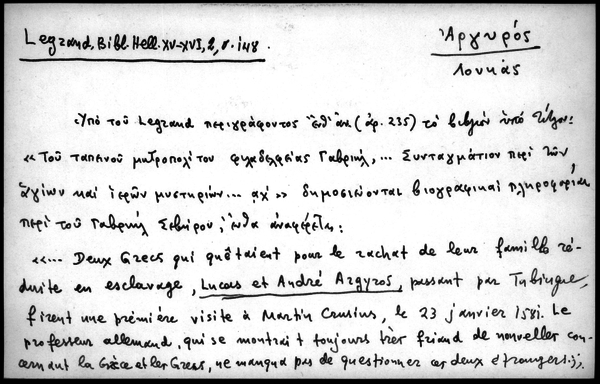 Legrand. Bibl. Hell. XV-XVI, 2, σ. 148.
Ἀργυρός
Λουκάς
Ὑπὸ τοῦ Legrand περιγράφοντος (ἀρ. 235) τὸ βιβλίον ὑπὸ τίτλον:
«Τοῦ ταπεινοῦ μητροπολίτου φιλαδελφείας Γαβριήλ, ... Συνταγμάτιον περὶ τῶν
ἁγίων καὶ ἱερῶν μυστηρίων... » δημοσιεύονται βιογραφικαὶ πληροφορίαι
περὶ τοῦ Γαβριήλ Σεβήρου, ἔνθα ἀναφέρεται:
«... Deux Grecs qui quêtaient pour le rachat de leur famille ré-
duite en esclavage, Lucas et André Argyros, passant par Tubingue,
firent une première visite à Martin Crusius, le 23 janvier 1581. Le
professeur allemand, qui se montrait toujours très friand de nouvelles con-
cernant la Grèce et les Grecs, ne manqua pas de questionner ces deux étrangers.»